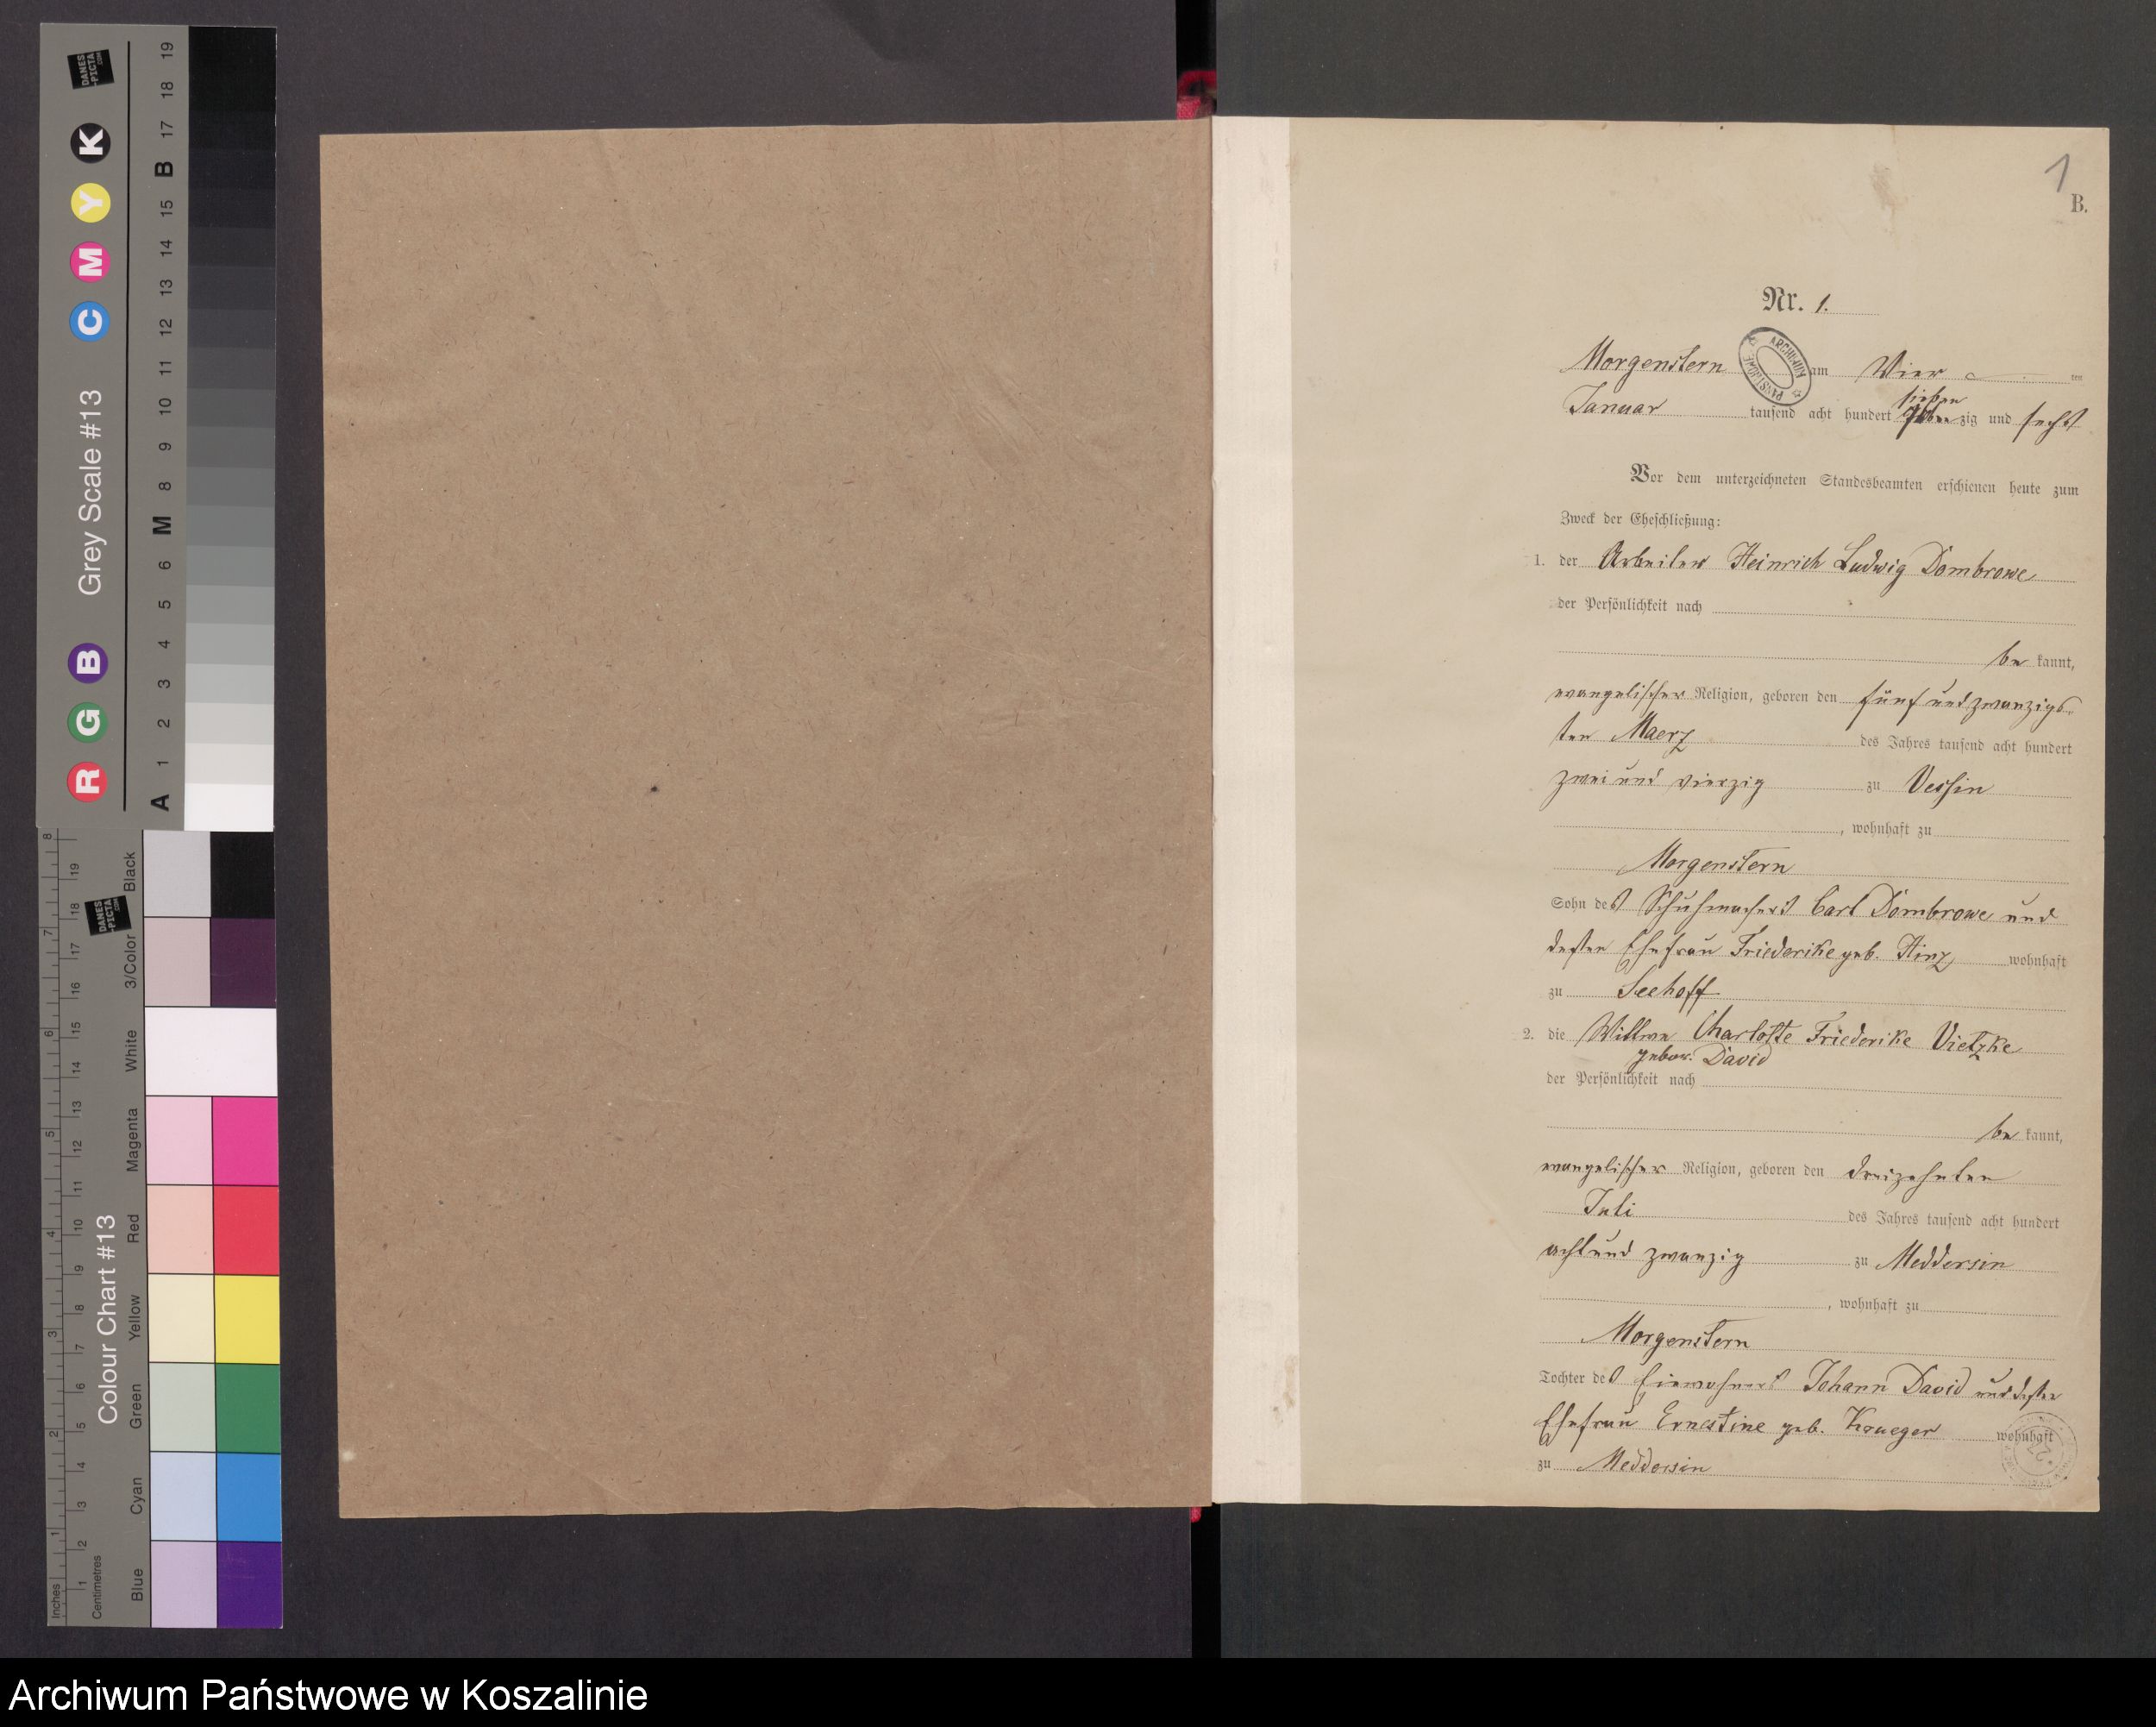 DANES-PICTA.COM
R G B Grey Scale #13 C M Y K
A 1 2 3 4 5 6 M 8 9 10 11 12 13 14 15 B 17 18 19
DANES-PICTA.COM
Colour Chart #13
Blue Cyan Green Yellow Red Magenta White 3/Color Black
Inches 1 2 3 4 5 6 7 8
Centimetres 1 2 3 4 5 6 7 8 9 10 11 12 13 14 15 16 17 18 19
1
B.
Nr. 1.
ARCHIWUM PAŃSTWOWE
Morgenstern am Vier ten
sieben
Januar tausend acht hundert zig und sechs
Vor dem unterzeichneten Standesbeamten erschienen heute zum
Zweck der Eheschließung:
1. der Arbeiter Heinrich Ludwig Dombrowe
der Persönlichkeit nach
be kannt,
evangelischer Religion, geboren den fünf und zwanzigs-
ten Maerz des Jahres tausend acht hundert
zwei und vierzig zu Vessin
, wohnhaft zu
Morgenstern
Sohn des Schuhmachers Carl Dombrowe und
dessen Ehefrau Friederike geb. Hinz wohnhaft
zu Seehoff
2. die Wittwe Charlotte Friederike Vietzke
gebor. David
der Persönlichkeit nach
be kannt,
evangelischer Religion, geboren den dreizehnten
Juli des Jahres tausend acht hundert
acht und zwanzig zu Meddersin
, wohnhaft zu
Morgenstern
Tochter des Einwohners Johann David und dessen
Ehefrau Ernestine geb. Krueger wohnhaft
zu Meddersin
Archiwum Państwowe w Koszalinie